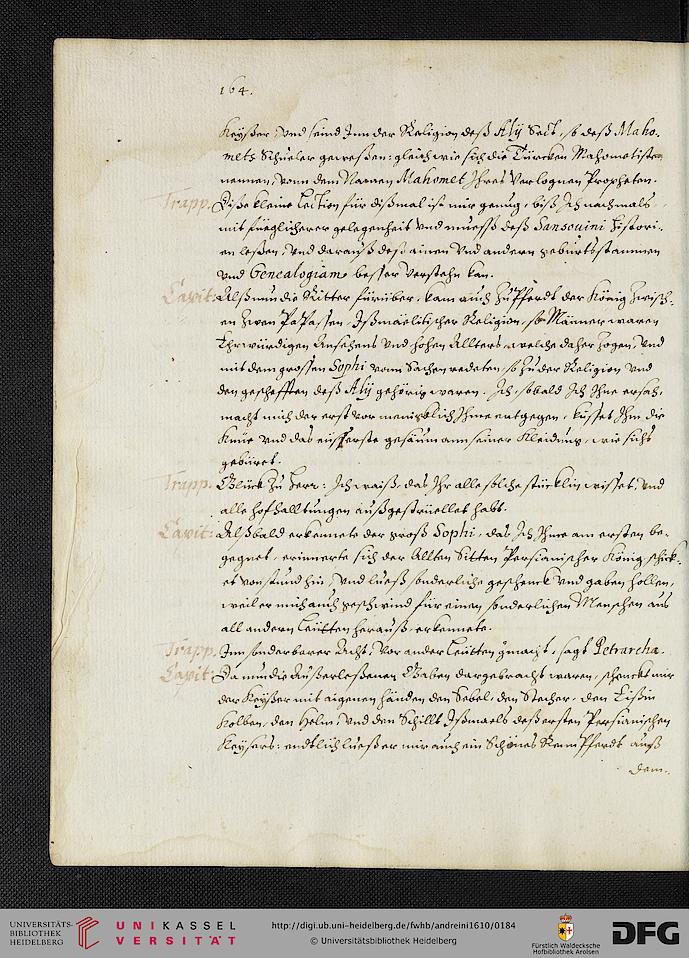 164.
Keÿßer, Vnd seind Inn der Religion deß Alÿ Sect, so deß Maho-
mets Schueler geweßen: gleich wie sich die Türcken Mahometisten
nennen, vonn dem Namen Mahomet Ihres Verlognen Propheten.
Trapp. Diße kleine Lection für dißmal ist mir genug, biß Ich nachmals
mit fueglicherer gelegenheit vnd mueß deß Sansouini Histori-
en leßen, Vnd darauß deß ainen Vnd andern geburtsstammen
vnd Genealogiam besser verstehn kan.
Capit: Alß nun die Ritter fürüber, kam auch zu Pferdt der König zwisch-
en zwen Papassen, Ismäelitischer Religion, so Männer waren
Ehrwürdigen Ansehens Vnd hohen Allters, welche daher zogen, Vnd
mit dem grossen Sophi vonn Sachen redeten, so zu der Religion vnd
den geschefften deß Alÿ gehörig waren. Ich, sobald Ich Ihne ersah,
macht mich der erst vor meniglich Ihme entgegen, küsset Ihm die
Knüe vnd das eüsserste gesäum ann seiner Kleidung, wie sichs
gebüret.
Trapp. Glück zu Herr: Ich waiß, das Ihr alle solche stücklin wisset, vnd
alle hof Halltungen außgestrüelet habt.
Capit: Alßbald erkennete der groß Sophi, das Ich Ihme am ersten be-
gegnet, erinnerte sich der Allten Sitten Persianischer König, schick-
et von stund hin, Vnd lueß sonderliche geschenck vnd gaben hollen,
weil er mich auch geschwind für einen sonderlichen Menschen aus
all andern Leütten herauß erkennete.
Trapp. Inn sonderbarer Acht, Vor ander Leütten gmacht, sagt Petrarcha.
Capit: Da nun die Außerleßenen Gaben dargebracht waren, schenckt mir
der Keÿßer mit aigenen händen den Sebel, den Stecher, den Eißin
Kolben, den Helm, Vnd den Schillt Ißmaels deß ersten Persianischen
Keÿsers: endtlich lueß er mir auch ein Schönes Renn Pferdt auß
dem-
UNIVERSITÄTS-
BIBLIOTHEK
HEIDELBERG
UNIKASSEL
VERSITÄT
http://digi.ub.uni-heidelberg.de/fwhb/andreini1610/0184
© Universitätsbibliothek Heidelberg
Fürstlich Waldecksche
Hofbibliothek Arolsen
DFG